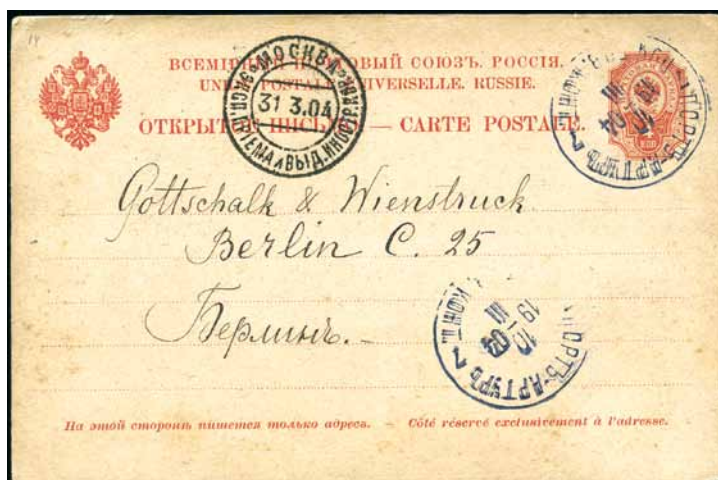 ВСЕМІРНЫЙ ПОЧТОВЫЙ СОЮЗЪ. РОССІЯ.
UNION POSTALE UNIVERSELLE. RUSSIE.
ОТКРЫТОЕ ПИСЬМО — CARTE POSTALE.
МОСКВА
31 3.04
ПРІЕМА И ВЫД. ИНОСТР. КОР.
ПОРТЪ-АРТУРЪ
19 III 04
10
Gottschalk & Wienstruck
Berlin C. 25
Берлинъ.-
ПОРТЪ-АРТУРЪ
19 III 04
10
На этой сторонѣ пишется только адресъ. — Côté réservé exclusivement à l'adresse.